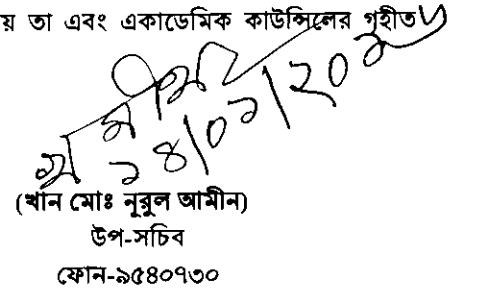 য় তা এবং একাডেমিক কাউন্সিলের গৃহীত
(খান মোঃ নূরুল আমীন)
উপ-সচিব
ফোন-৯৫৪০৭৩০